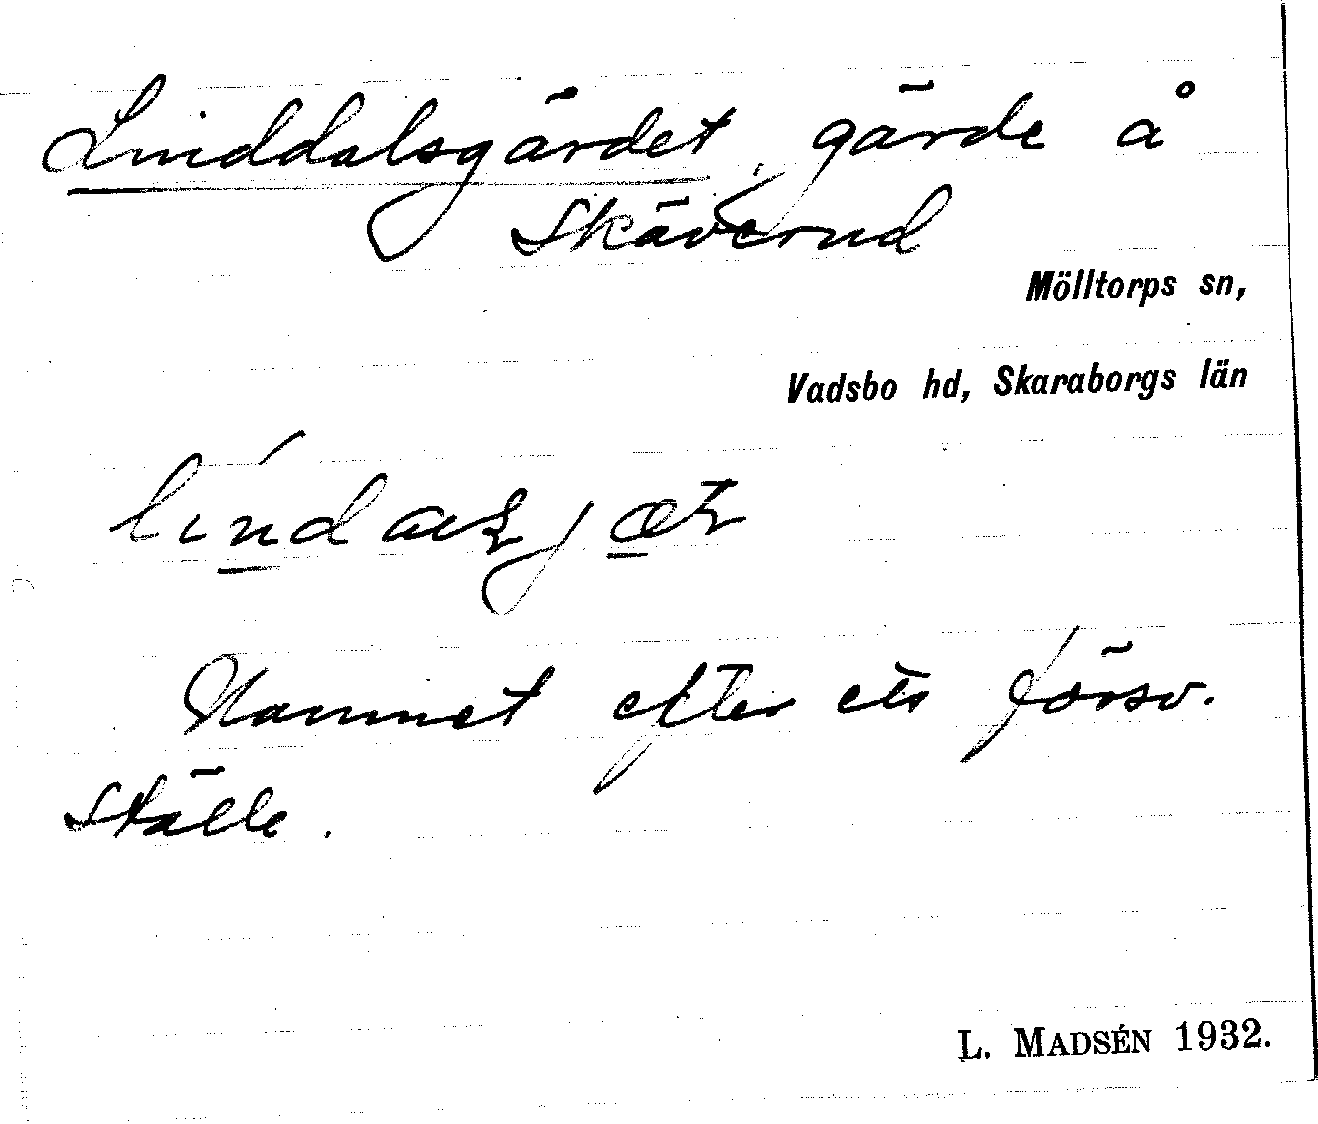 Linddalsgärdet, gärde å
Skäverud
Mölltorps sn,
Vadsbo hd, Skaraborgs län
Namnet efter ett försv.
ställe.
L. MADSÉN 1932.